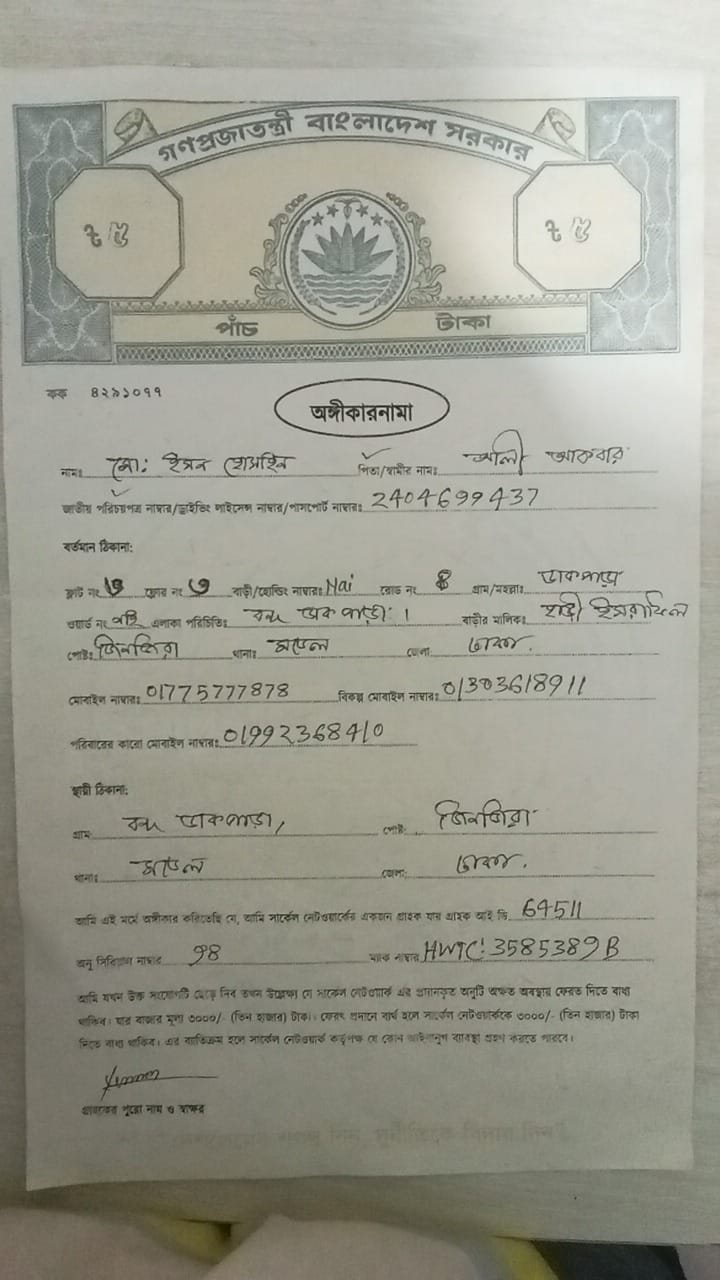 গণপ্রজাতন্ত্রী বাংলাদেশ সরকার
ট ৫ ট ৫
পাঁচ টাকা
কক ৪২৯১০৭৭
অঙ্গীকারনামা
নামঃ মো: ইমন হোসাইন পিতা/স্বামীর নামঃ আলী আকবার
জাতীয় পরিচয়পত্র নাম্বার/ড্রাইভিং লাইসেন্স নাম্বার/পাসপোর্ট নাম্বারঃ 2404699437
বর্তমান ঠিকানা:
ফ্লাট নংঃ ফ্লোর নংঃ ৩ বাড়ী/হোল্ডিং নাম্বারঃ Nai রোড নং গ্রাম/মহল্লাঃ ডাকপাড়া
ওয়ার্ড নং এলাকা পরিচিতিঃ বন্দ ডাক পাড়া। বাড়ীর মালিকঃ হাজী ইসরাফিল
পোষ্টঃ জিনজিরা থানাঃ মডেল জেলা ঢাকা.
মোবাইল নাম্বারঃ 01775777878 বিকল্প মোবাইল নাম্বারঃ 01303618911
পরিবারের কারো মোবাইল নাম্বারঃ 01992368410
স্থায়ী ঠিকানা:
গ্রামঃ বন্দ ডাকপাড়া, পোষ্ট: জিনজিরা
থানাঃ মডেল জেলা: ঢাকা.
আমি এই মর্মে অঙ্গীকার করিতেছি যে, আমি সার্কেল নেটওয়ার্কের একজন গ্রাহক যার গ্রাহক আই ডি 64511
অনু সিরিয়াল নাম্বার ম্যাক নাম্বার HWTC: 3585389B
আমি যখন উক্ত সংযোগটি ছেড়ে দিব তখন উল্লেক্ষ্য যে সার্কেল নেটওয়ার্ক এর প্রদানকৃত অনুটি অক্ষত অবস্থায় ফেরত দিতে বাধ্য
থাকিব। যার বাজার মূল্য ৩০০০/- (তিন হাজার) টাকা। ফেরৎ প্রদানে ব্যর্থ হলে সার্কেল নেটওয়ার্ককে ৩০০০/- (তিন হাজার) টাকা
দিতে বাধ্য থাকিব। এর ব্যতিক্রম হলে সার্কেল নেটওয়ার্ক কর্তৃপক্ষ যে কোন আইনানুগ ব্যবস্থা গ্রহণ করতে পারবে।
গ্রাহকের পুরো নাম ও স্বাক্ষর